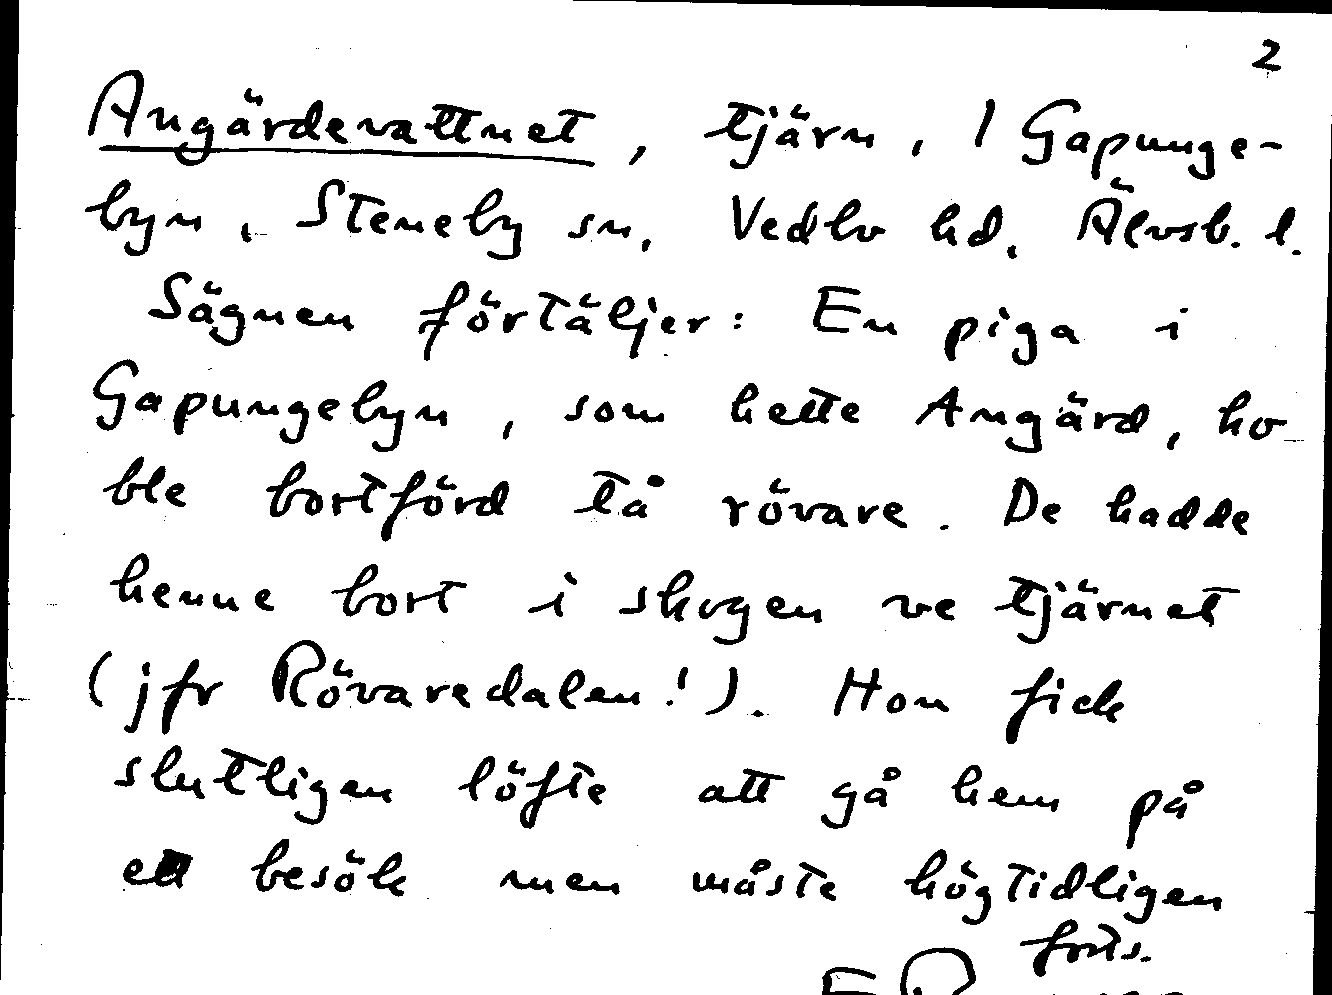 2
Angärdevattnet, tjärn, i Gapunge-
byn, Steneby sn, Vedbo hd, Älvsb. l.
Sägnen förtäljer: En piga i
Gapungebyn, som hette Angärd, ho
ble bortförd tå rövare. De hadde
henne bort i skogen ve tjärnet
(jfr Rövaredalen!). Hon fick
slutligen löfte att gå hem på
ett besök men måste högtidligen
forts.